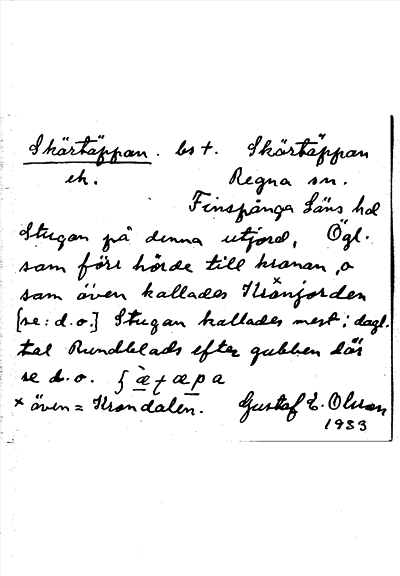 Skärtäppan. bs +. Skärtäppan
eh. Regna sn.
Finspånga Läns hd
Stugan på denna utjord, Ögl.
som förr hörde till kronan, o
som även kallades Kronjorden
[se: d.o.] Stugan kallades mest i dagl.
tal Rundblads efter gubben där
se d.o.
× även = Krondalen. Gustaf E. Olsson
1933